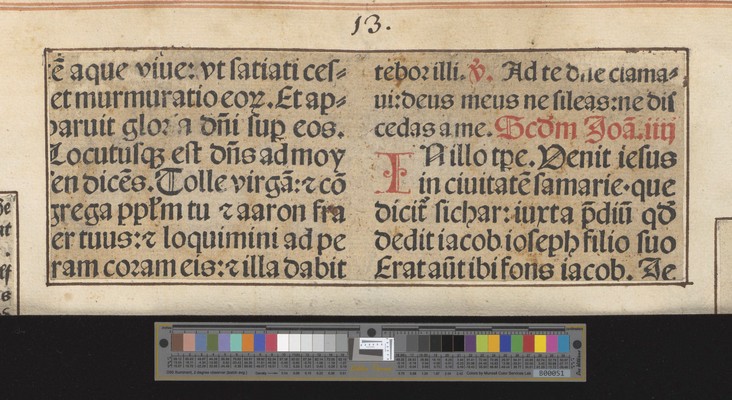 13.
ē aque viue: vt satiati ces⸗
et murmuratio eoꝝ. Et ap⸗
paruit gloria dn̄i sup̄ eos.
Locutusqꝫ est dn̄s ad moy
sen dicēs. Tolle virgā: ⁊ cō
grega pp̄lm tu ⁊ aaron fra
er tuus: ⁊ loquimini ad pe
ram coram eis: ⁊ illa dabit
tebor illi. ℣. Ad te dn̄e clama⸗
ui: deus meus ne sileas: ne dis
cedas a me. Scd̄m Joā. iiij
IN illo tp̄e. Venit iesus
in ciuitatē samarie· que
dicit̄ sichar: iuxta p̄diū qd̄
dedit iacob ioseph filio suo
Erat aūt ibi fons iacob. Je
B00051